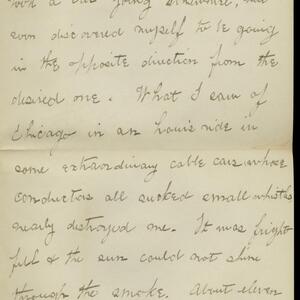 took a car going somewhere, and
soon discovered myself to be going
in the opposite direction from the
desired one. What I saw of
Chicago in an hour's ride in
some extraordinary cable cars whose
conductors all sucked small whistles
nearly destroyed me. It was fright
full & the sun could not shine
through the smoke. About eleven